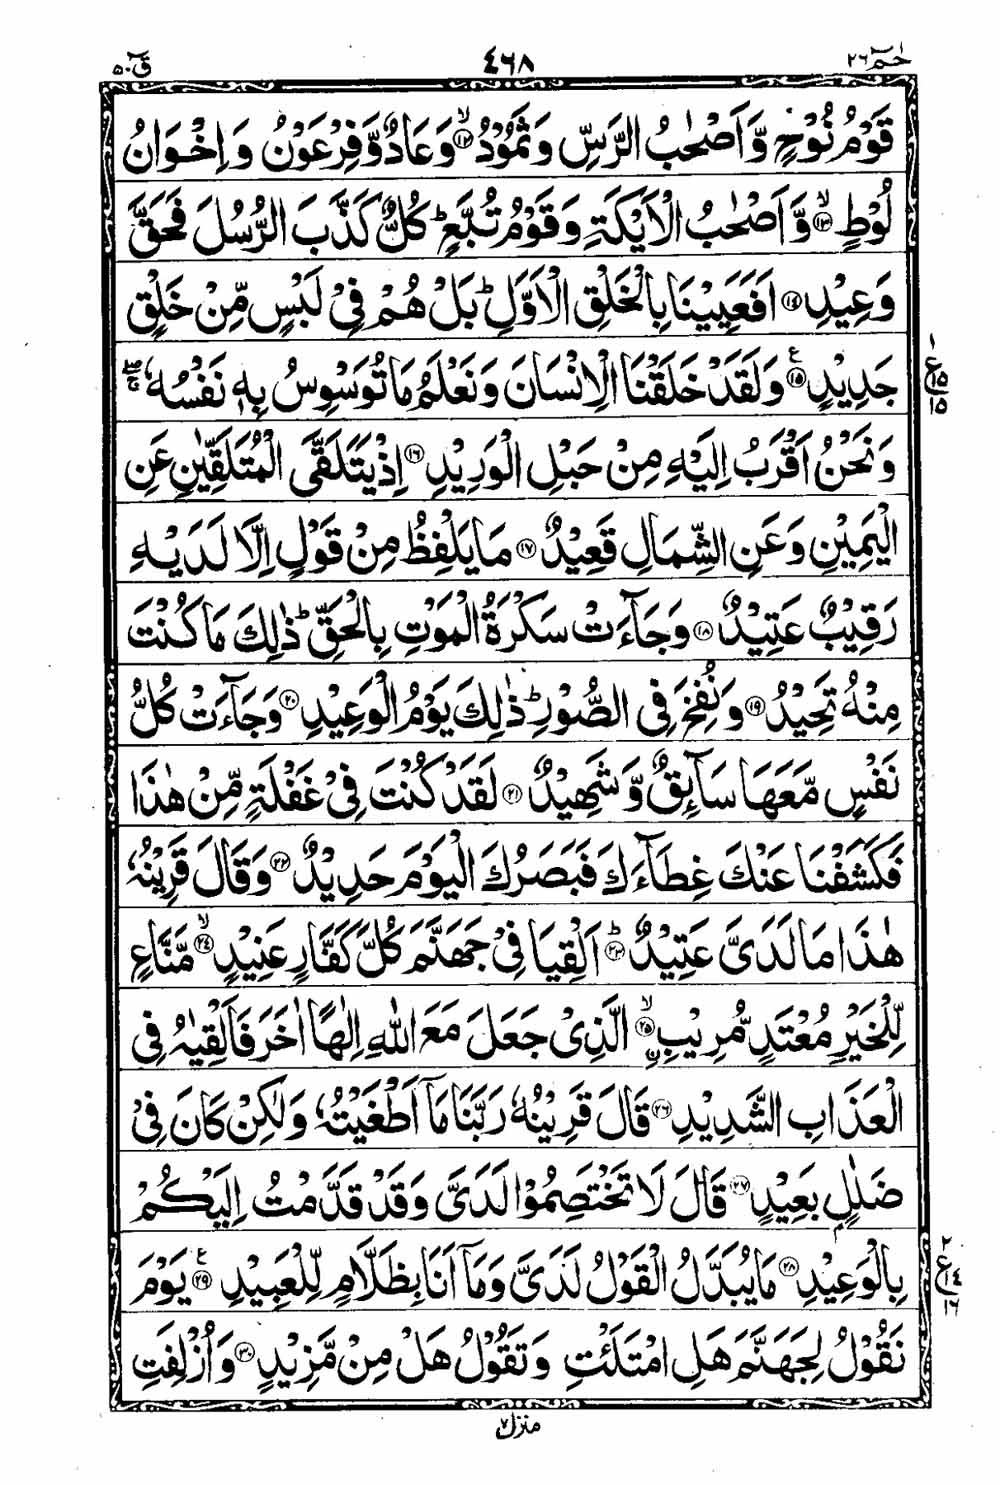 حٰمٓ ٢٦
٤٦٨
قٓ ٥٠
قَوْمُ نُوْحٍ وَّاَصْحٰبُ الرَّسِّ وَثَمُوْدُ ۙ‏﴿۱۲﴾ وَعَادٌ وَّفِرْعَوْنُ وَاِخْوَانُ
لُوْطٍ ۙ‏﴿۱۳﴾ وَّاَصْحٰبُ الْاَيْكَةِ وَقَوْمُ تُبَّعٍ ؕ كُلٌّ كَذَّبَ الرُّسُلَ فَحَقَّ
وَعِيْدِ ﴿۱۴﴾ اَفَعَيِيْنَا بِالْخَلْقِ الْاَوَّلِ ؕ بَلْ هُمْ فِيْ لَبْسٍ مِّنْ خَلْقٍ
جَدِيْدٍ ﴿۱۵﴾ ع وَلَقَدْ خَلَقْنَا الْاِنْسَانَ وَنَعْلَمُ مَا تُوَسْوِسُ بِهٖ نَفْسُهٗ
١ ع ١٥ ١٥
وَنَحْنُ اَقْرَبُ اِلَيْهِ مِنْ حَبْلِ الْوَرِيْدِ ﴿۱۶﴾ اِذْ يَتَلَقَّى الْمُتَلَقِّيٰنِ عَنِ
الْيَمِيْنِ وَعَنِ الشِّمَالِ قَعِيْدٌ ﴿۱۷﴾ مَا يَلْفِظُ مِنْ قَوْلٍ اِلَّا لَدَيْهِ
رَقِيْبٌ عَتِيْدٌ ﴿۱۸﴾ وَجَآءَتْ سَكْرَةُ الْمَوْتِ بِالْحَقِّ ؕ ذٰلِكَ مَا كُنْتَ
مِنْهُ تَحِيْدُ ﴿۱۹﴾ وَنُفِخَ فِي الصُّوْرِ ؕ ذٰلِكَ يَوْمُ الْوَعِيْدِ ﴿۲۰﴾ وَجَآءَتْ كُلُّ
نَفْسٍ مَّعَهَا سَآئِقٌ وَّشَهِيْدٌ ﴿۲۱﴾ لَقَدْ كُنْتَ فِيْ غَفْلَةٍ مِّنْ هٰذَا
فَكَشَفْنَا عَنْكَ غِطَآءَكَ فَبَصَرُكَ الْيَوْمَ حَدِيْدٌ ﴿۲۲﴾ وَقَالَ قَرِيْنُهٗ
هٰذَا مَا لَدَيَّ عَتِيْدٌ ؕ‏﴿۲۳﴾ اَلْقِيَا فِيْ جَهَنَّمَ كُلَّ كَفَّارٍ عَنِيْدٍ ۙ‏﴿۲۴﴾ مَّنَّاعٍ
لِّلْخَيْرِ مُعْتَدٍ مُّرِيْبِ ۙ‏﴿۲۵﴾ ن الَّذِيْ جَعَلَ مَعَ اللّٰهِ اِلٰهًا اٰخَرَ فَاَلْقِيٰهُ فِي
الْعَذَابِ الشَّدِيْدِ ﴿۲۶﴾ قَالَ قَرِيْنُهٗ رَبَّنَا مَآ اَطْغَيْتُهٗ وَلٰكِنْ كَانَ فِيْ
ضَلٰلٍ بَعِيْدٍ ﴿۲۷﴾ قَالَ لَا تَخْتَصِمُوْا لَدَيَّ وَقَدْ قَدَّمْتُ اِلَيْكُمْ
بِالْوَعِيْدِ ﴿۲۸﴾ مَا يُبَدَّلُ الْقَوْلُ لَدَيَّ وَمَآ اَنَا بِظَلَّامٍ لِّلْعَبِيْدِ ﴿۲۹﴾ ع يَوْمَ
٢ ع ١٤ ١٦
نَقُوْلُ لِجَهَنَّمَ هَلِ امْتَلَئْتِ وَتَقُوْلُ هَلْ مِنْ مَّزِيْدٍ ﴿۳۰﴾ وَاُزْلِفَتِ
منزل ٧